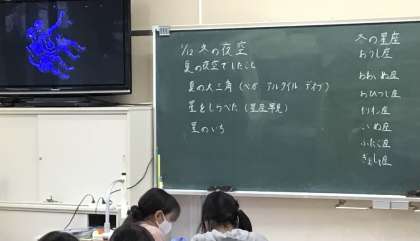 1/12 冬の夜空
夏の夜空でしたこと
夏の大三角（ベガ アルタイル デネブ）
星をしらべた（星座早見）
星のいち
冬の星座
おうし座
おおいぬ座
おひつじ座
オリオン座
こいぬ座
ふたご座
ぎょしゃ座